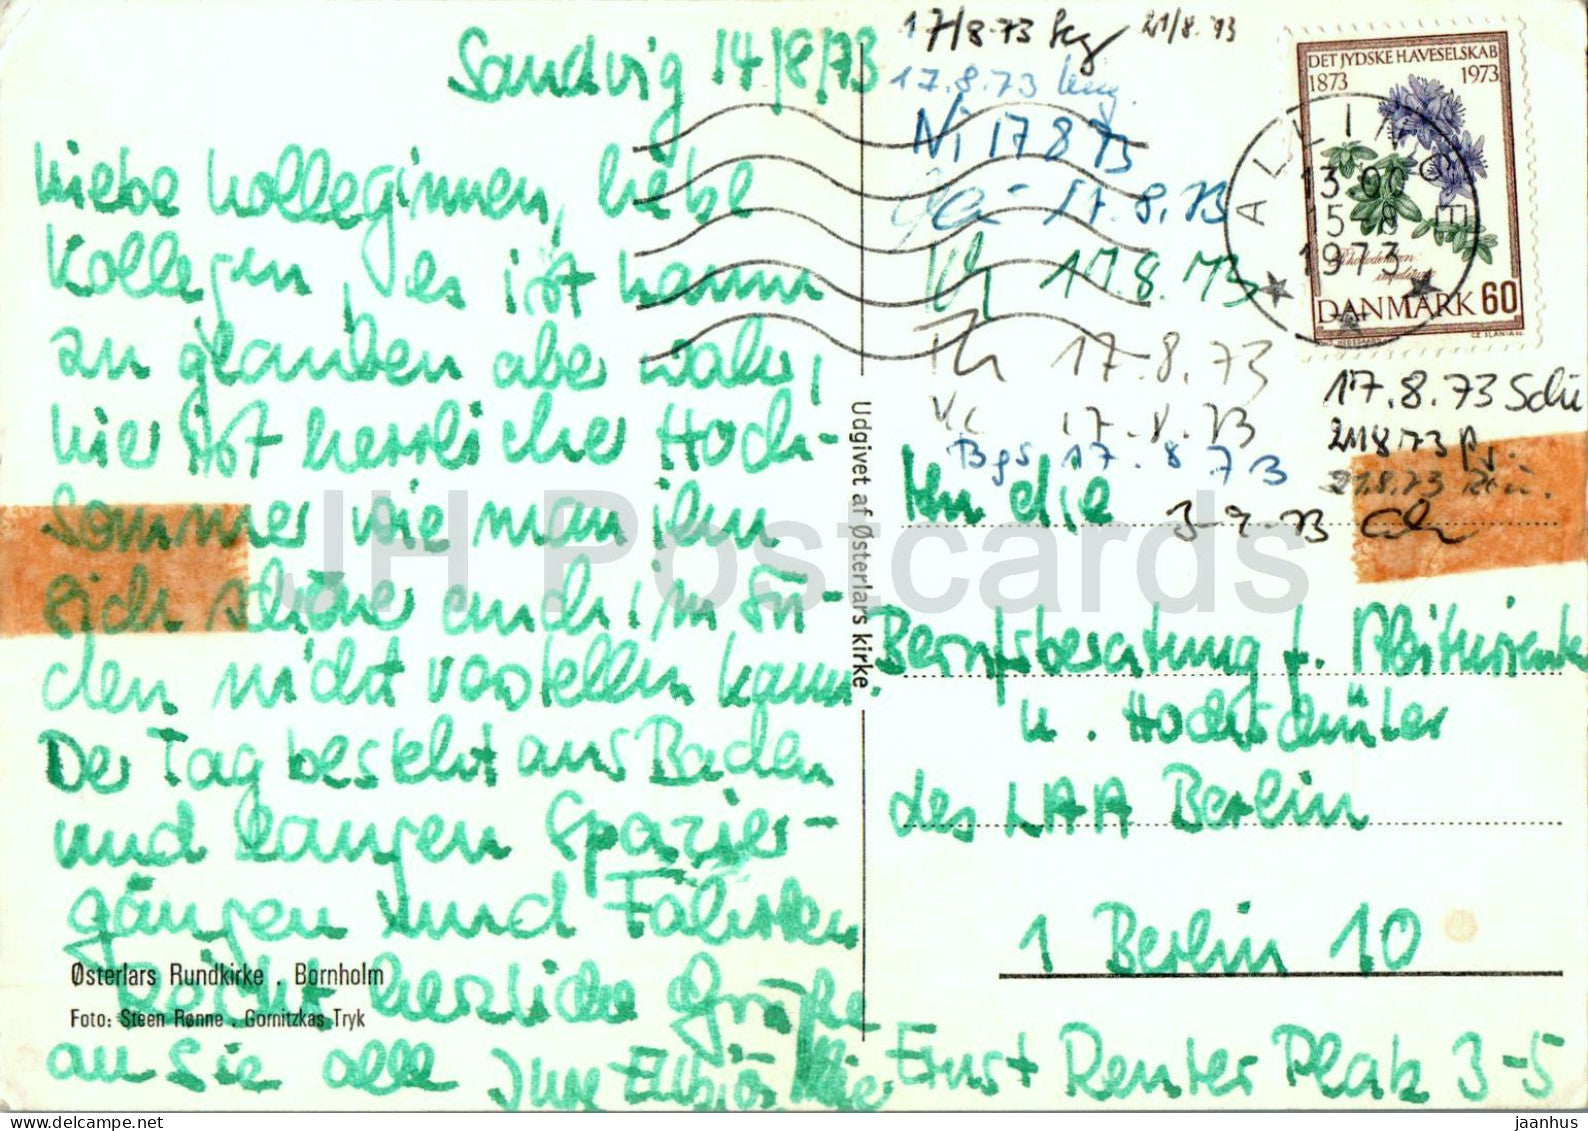 Sandvig 14/8/73
Liebe Kolleginnen, liebe
Kollegen, es ist kaum
zu glauben aber wahr,
hier ist herrlicher Hoch-
sommer wie man ihn
sich schöner auch im Sü-
den nicht vorstellen kann.
Der Tag besteht aus Baden
und langen Spazier-
gängen und Fahrten
Recht herzliche Grüße
an Sie alle Ihre
Østerlars Rundkirke . Bornholm
Foto: Steen Rønne . Gornitzkas Tryk
Udgivet af Østerlars kirke
17/8.73
21/8.73
17.8.73
Ni 17 8 73
17.8.73
17.8.73
Th 17.8.73
17.8.73
Bgs 17.8 73
17.8.73 Schü
21.8.73
21.8.73
3-9-73
DET JYDSKE HAVESELSKAB
1873 1973
Rhododendron
impeditum
DANMARK 60
CZ. SLANIA sc.
ALLINGE
13-00
15-8
1973
An die
Berufsberatung f. Abiturienten
u. Hochschüler
des LAA Berlin
1 Berlin 10
Ernst Reuter Platz 3-5
JH Postcards
jaanhus © www.delcampe.net